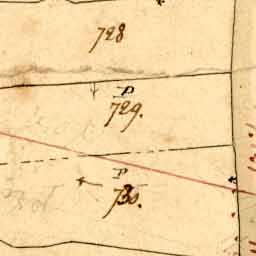 728
P
729.
P
730.